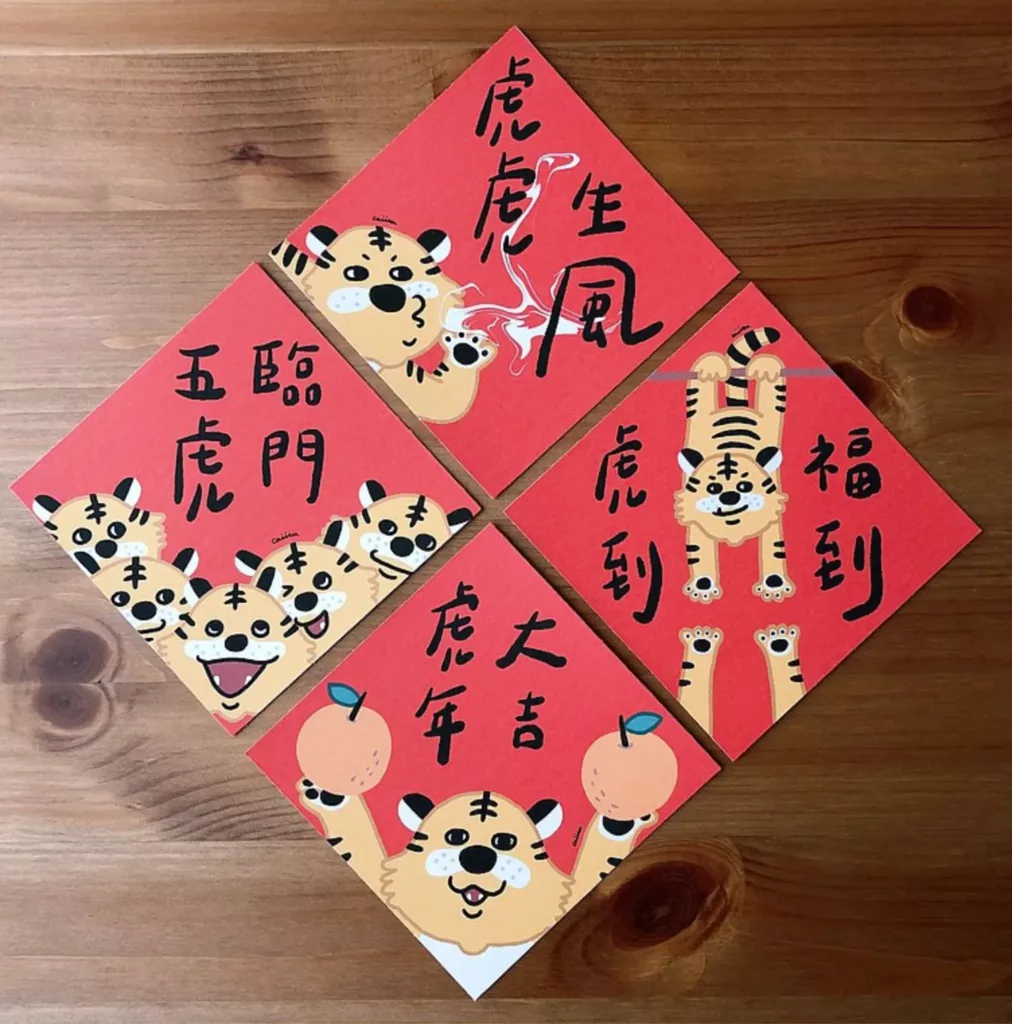 虎虎
生風
五虎
臨門
虎到
福到
虎年
大吉